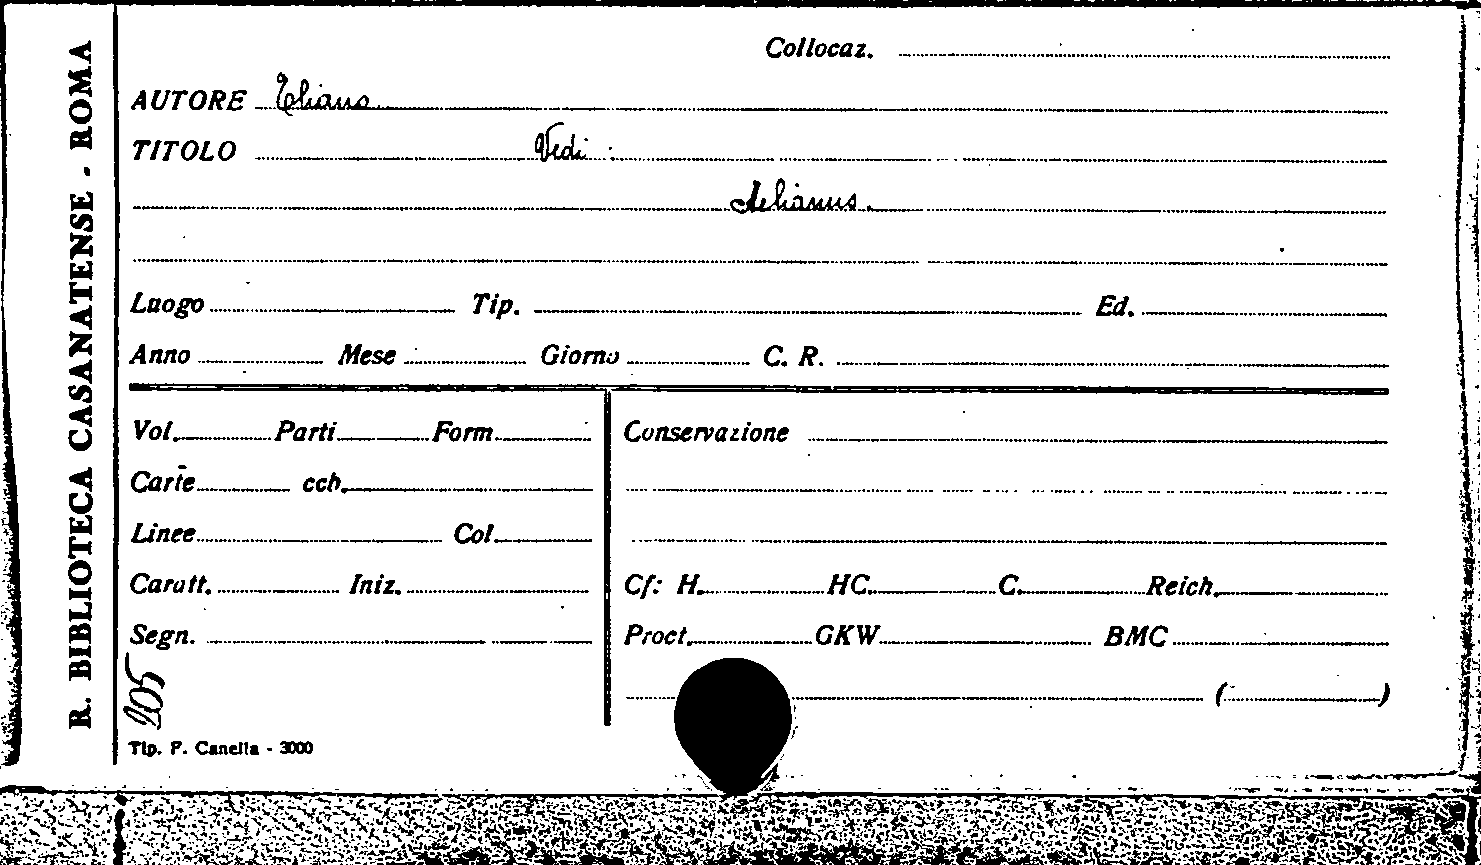 R. BIBLIOTECA CASANATENSE - ROMA
Collocaz.
AUTORE Eliano
TITOLO Vedi :
Aelianus.
Luogo Tip. Ed.
Anno Mese Giorno C. R.
Vol. Parti Form.
Carte ccb.
Linee Col.
Caratt. Iniz.
Segn.
Conservazione
Cf: H. HC. C. Reich.
Proct. GKW. BMC
( )
205
Tip. F. Canella - 3000